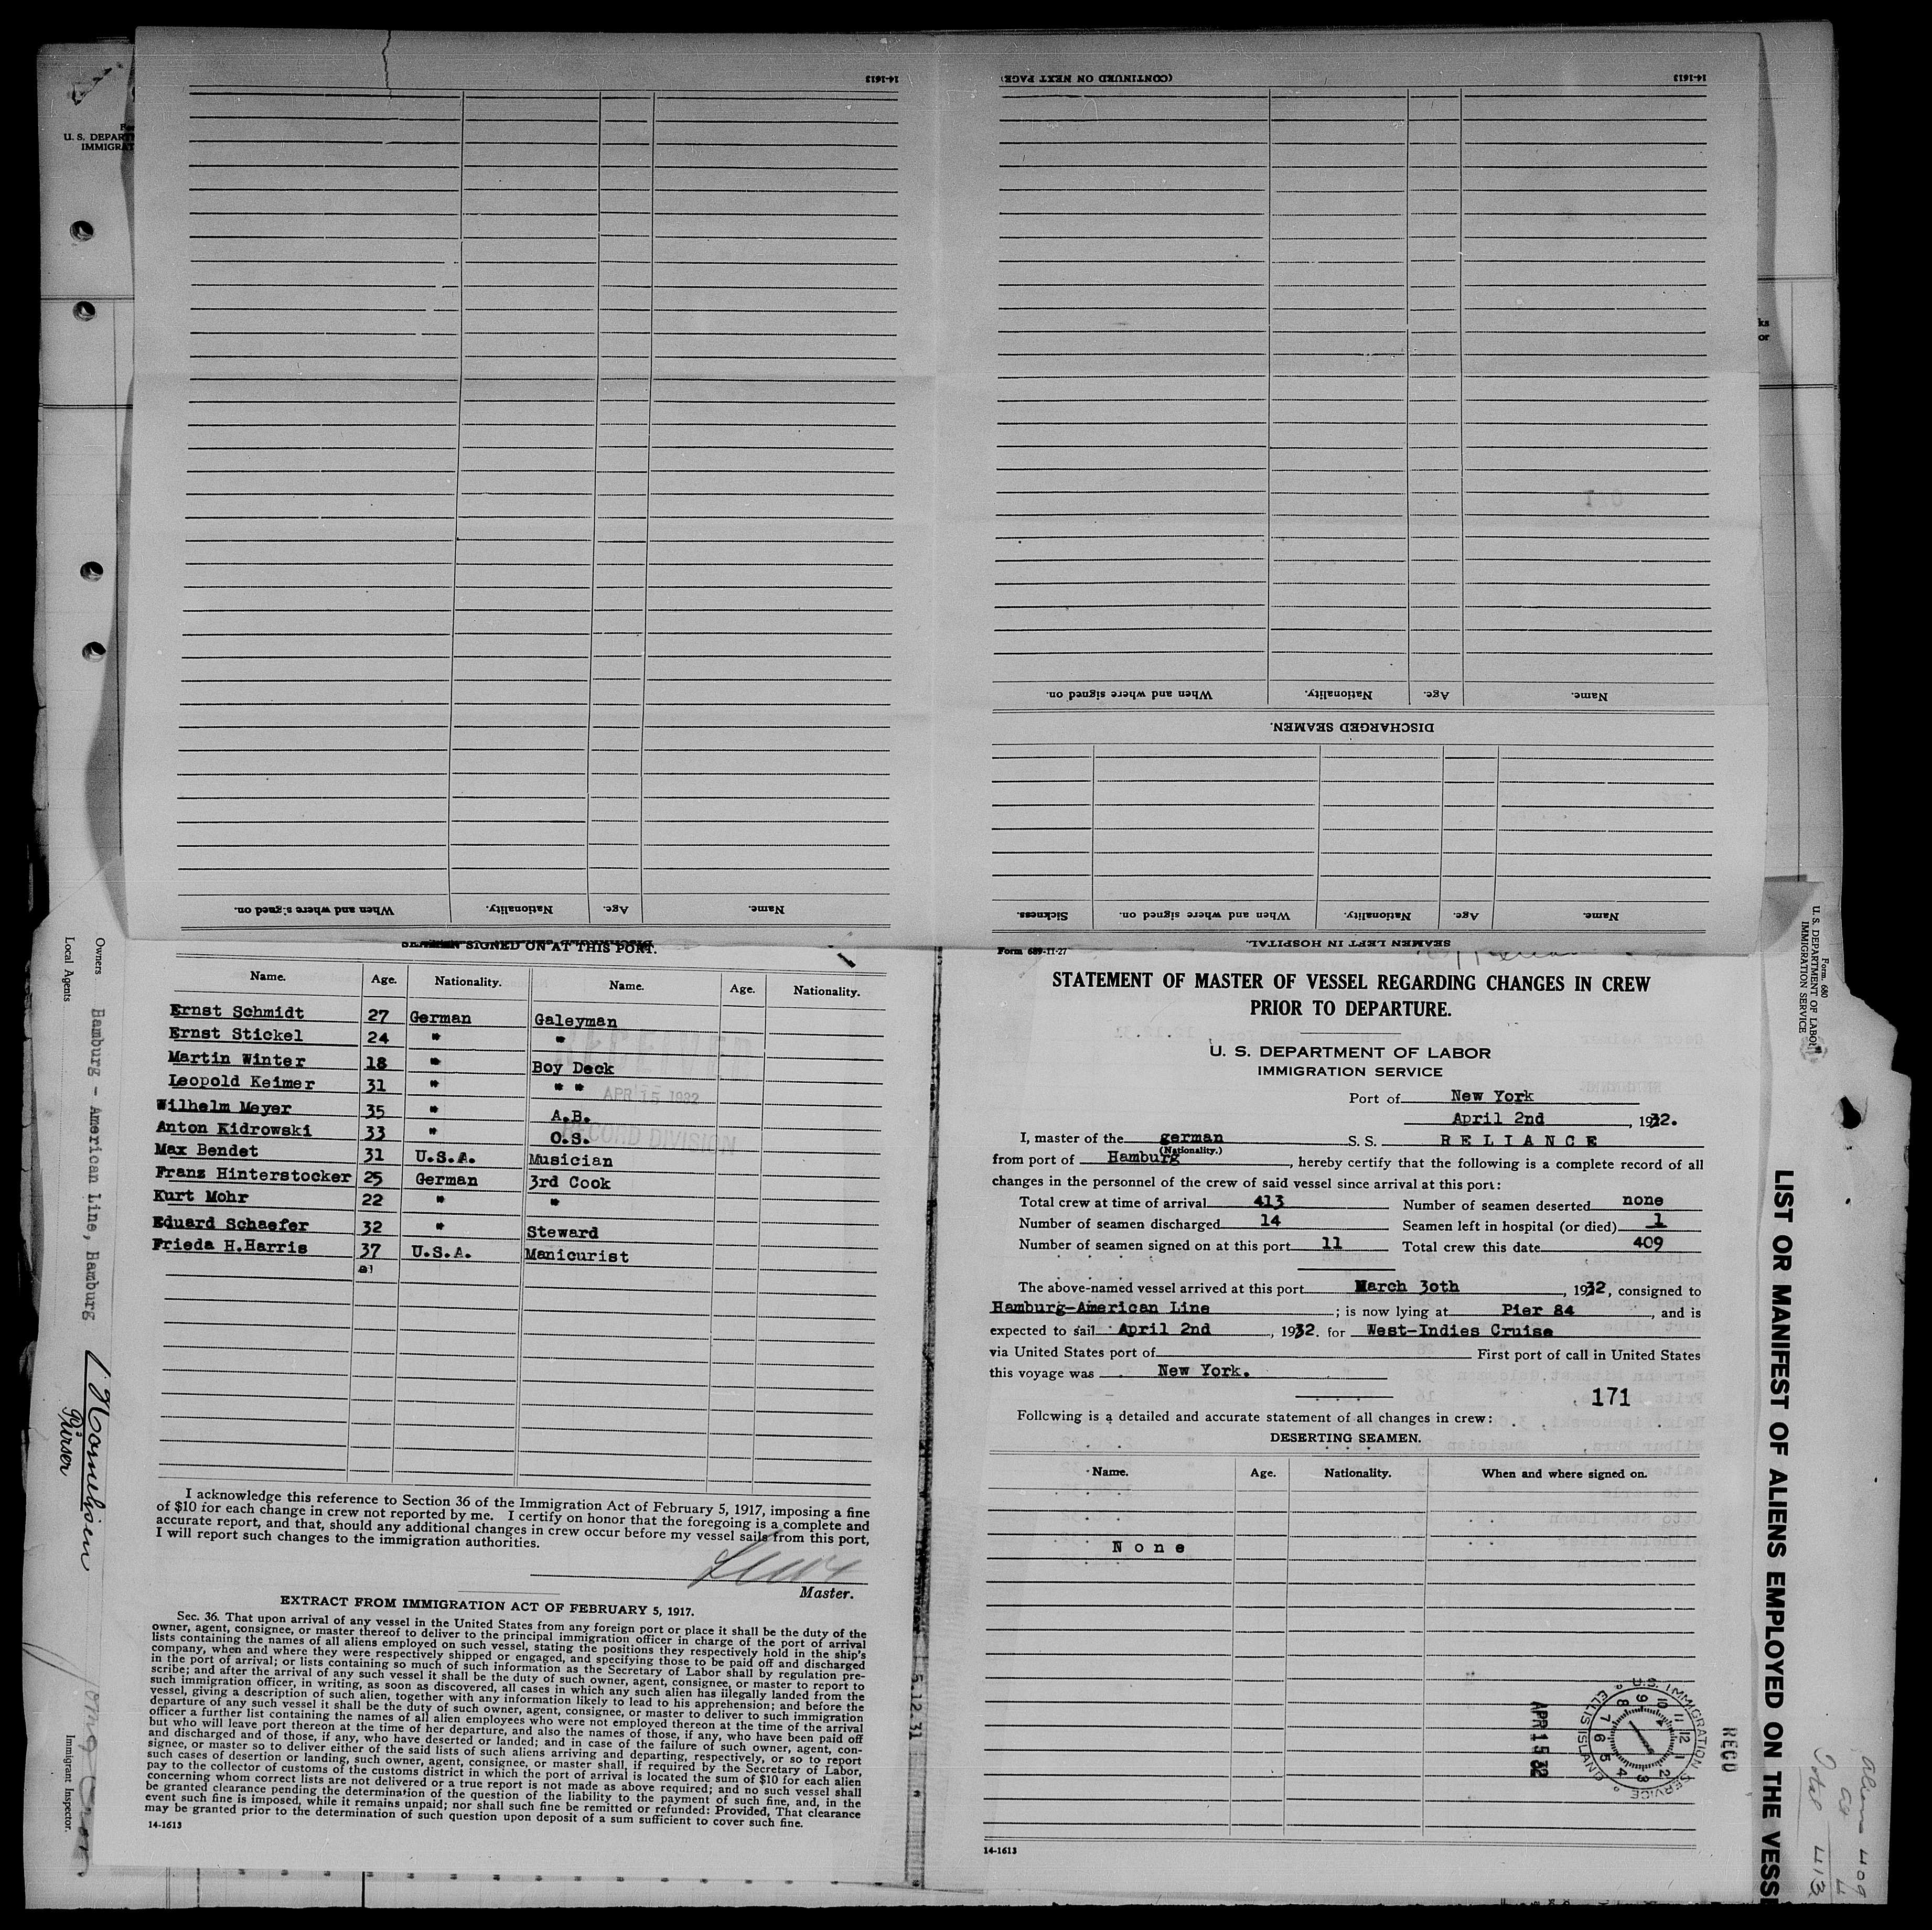 14-1613
(CONTINUED ON NEXT PAGE)
14-1613
U. S. DEPART
IMMIGRAT
ks
or
When and where signed on.
Nationality.
Age.
Name.
DISCHARGED SEAMEN.
When and where signed on.
Nationality.
Age.
Name.
Sickness.
When and where signed on.
Nationality.
Age.
Name.
SEAMEN LEFT IN HOSPITAL.
SEAMEN SIGNED ON AT THIS PORT.
Name. Age. Nationality. Name. Age. Nationality.
Ernst Schmidt 27 German Galeyman
Ernst Stickel 24 " "
Martin Winter 18 " Boy Deck
Leopold Keimer 31 " " "
Wilhelm Meyer 35 " A.B.
Anton Kidrowski 33 " O.S.
Max Bendet 31 U.S.A. Musician
Franz Hinterstocker 25 German 3rd Cook
Kurt Mohr 22 " "
Eduard Schaefer 32 " Steward
Frieda H.Harris 37 U.S.A. Manicurist
RECEIVED
APR 15 1932
RECORD DIVISION
I acknowledge this reference to Section 36 of the Immigration Act of February 5, 1917, imposing a fine
of $10 for each change in crew not reported by me. I certify on honor that the foregoing is a complete and
accurate report, and that, should any additional changes in crew occur before my vessel sails from this port,
I will report such changes to the immigration authorities.
Master.
EXTRACT FROM IMMIGRATION ACT OF FEBRUARY 5, 1917.
Sec. 36. That upon arrival of any vessel in the United States from any foreign port or place it shall be the duty of the
owner, agent, consignee, or master thereof to deliver to the principal immigration officer in charge of the port of arrival
lists containing the names of all aliens employed on such vessel, stating the positions they respectively hold in the ship's
company, when and where they were respectively shipped or engaged, and specifying those to be paid off and discharged
in the port of arrival; or lists containing so much of such information as the Secretary of Labor shall by regulation pre-
scribe; and after the arrival of any such vessel it shall be the duty of such owner, agent, consignee, or master to report to
such immigration officer, in writing, as soon as discovered, all cases in which any such alien has illegally landed from the
vessel, giving a description of such alien, together with any information likely to lead to his apprehension; and before the
departure of any such vessel it shall be the duty of such owner, agent, consignee, or master to deliver to such immigration
officer a further list containing the names of all alien employees who were not employed thereon at the time of the arrival
but who will leave port thereon at the time of her departure, and also the names of those, if any, who have been paid off
and discharged and of those, if any, who have deserted or landed; and in case of the failure of such owner, agent, con-
signee, or master so to deliver either of the said lists of such aliens arriving and departing, respectively, or so to report
such cases of desertion or landing, such owner, agent, consignee, or master shall, if required by the Secretary of Labor,
pay to the collector of customs of the customs district in which the port of arrival is located the sum of $10 for each alien
concerning whom correct lists are not delivered or a true report is not made as above required; and no such vessel shall
be granted clearance pending the determination of the question of the liability to the payment of such fine, and, in the
event such fine is imposed, while it remains unpaid; nor shall such fine be remitted or refunded: Provided, That clearance
may be granted prior to the determination of such question upon deposit of a sum sufficient to cover such fine.
14-1613
Form 689-11-27
STATEMENT OF MASTER OF VESSEL REGARDING CHANGES IN CREW
PRIOR TO DEPARTURE.
U. S. DEPARTMENT OF LABOR
IMMIGRATION SERVICE
Port of New York
April 2nd, 1932.
I, master of the german S. S. RELIANCE
(Nationality.)
from port of Hamburg, hereby certify that the following is a complete record of all
changes in the personnel of the crew of said vessel since arrival at this port:
Total crew at time of arrival 413 Number of seamen deserted none
Number of seamen discharged 14 Seamen left in hospital (or died) 1
Number of seamen signed on at this port 11 Total crew this date 409
The above-named vessel arrived at this port March 30th, 1932, consigned to
Hamburg-American Line; is now lying at Pier 84, and is
expected to sail April 2nd, 1932. for West-Indies Cruise
via United States port of First port of call in United States
this voyage was New York.
171
Following is a detailed and accurate statement of all changes in crew:
DESERTING SEAMEN.
Name. Age. Nationality. When and where signed on.
None
14-1613
U.S. IMMIGRATION SERVICE
ELLIS ISLAND
APR 15 32
RECD
5 12 31
Owners Hamburg - American Line, Hamburg
Local Agents
Pürser
Immigrant Inspector.
Form 680
U. S. DEPARTMENT OF LABOR
IMMIGRATION SERVICE
LIST OR MANIFEST OF ALIENS EMPLOYED ON THE VESS
Aliens 409
4
Total 413